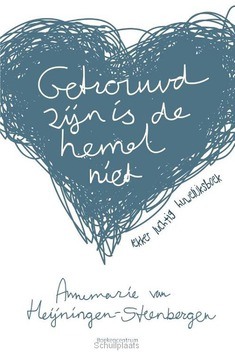 Getrouwd
zijn is de
hemel
niet
lekker luchtig huwelijksboek
Annemarie van
Heijningen-Steenbergen
Boekencentrum
Schuilplaats